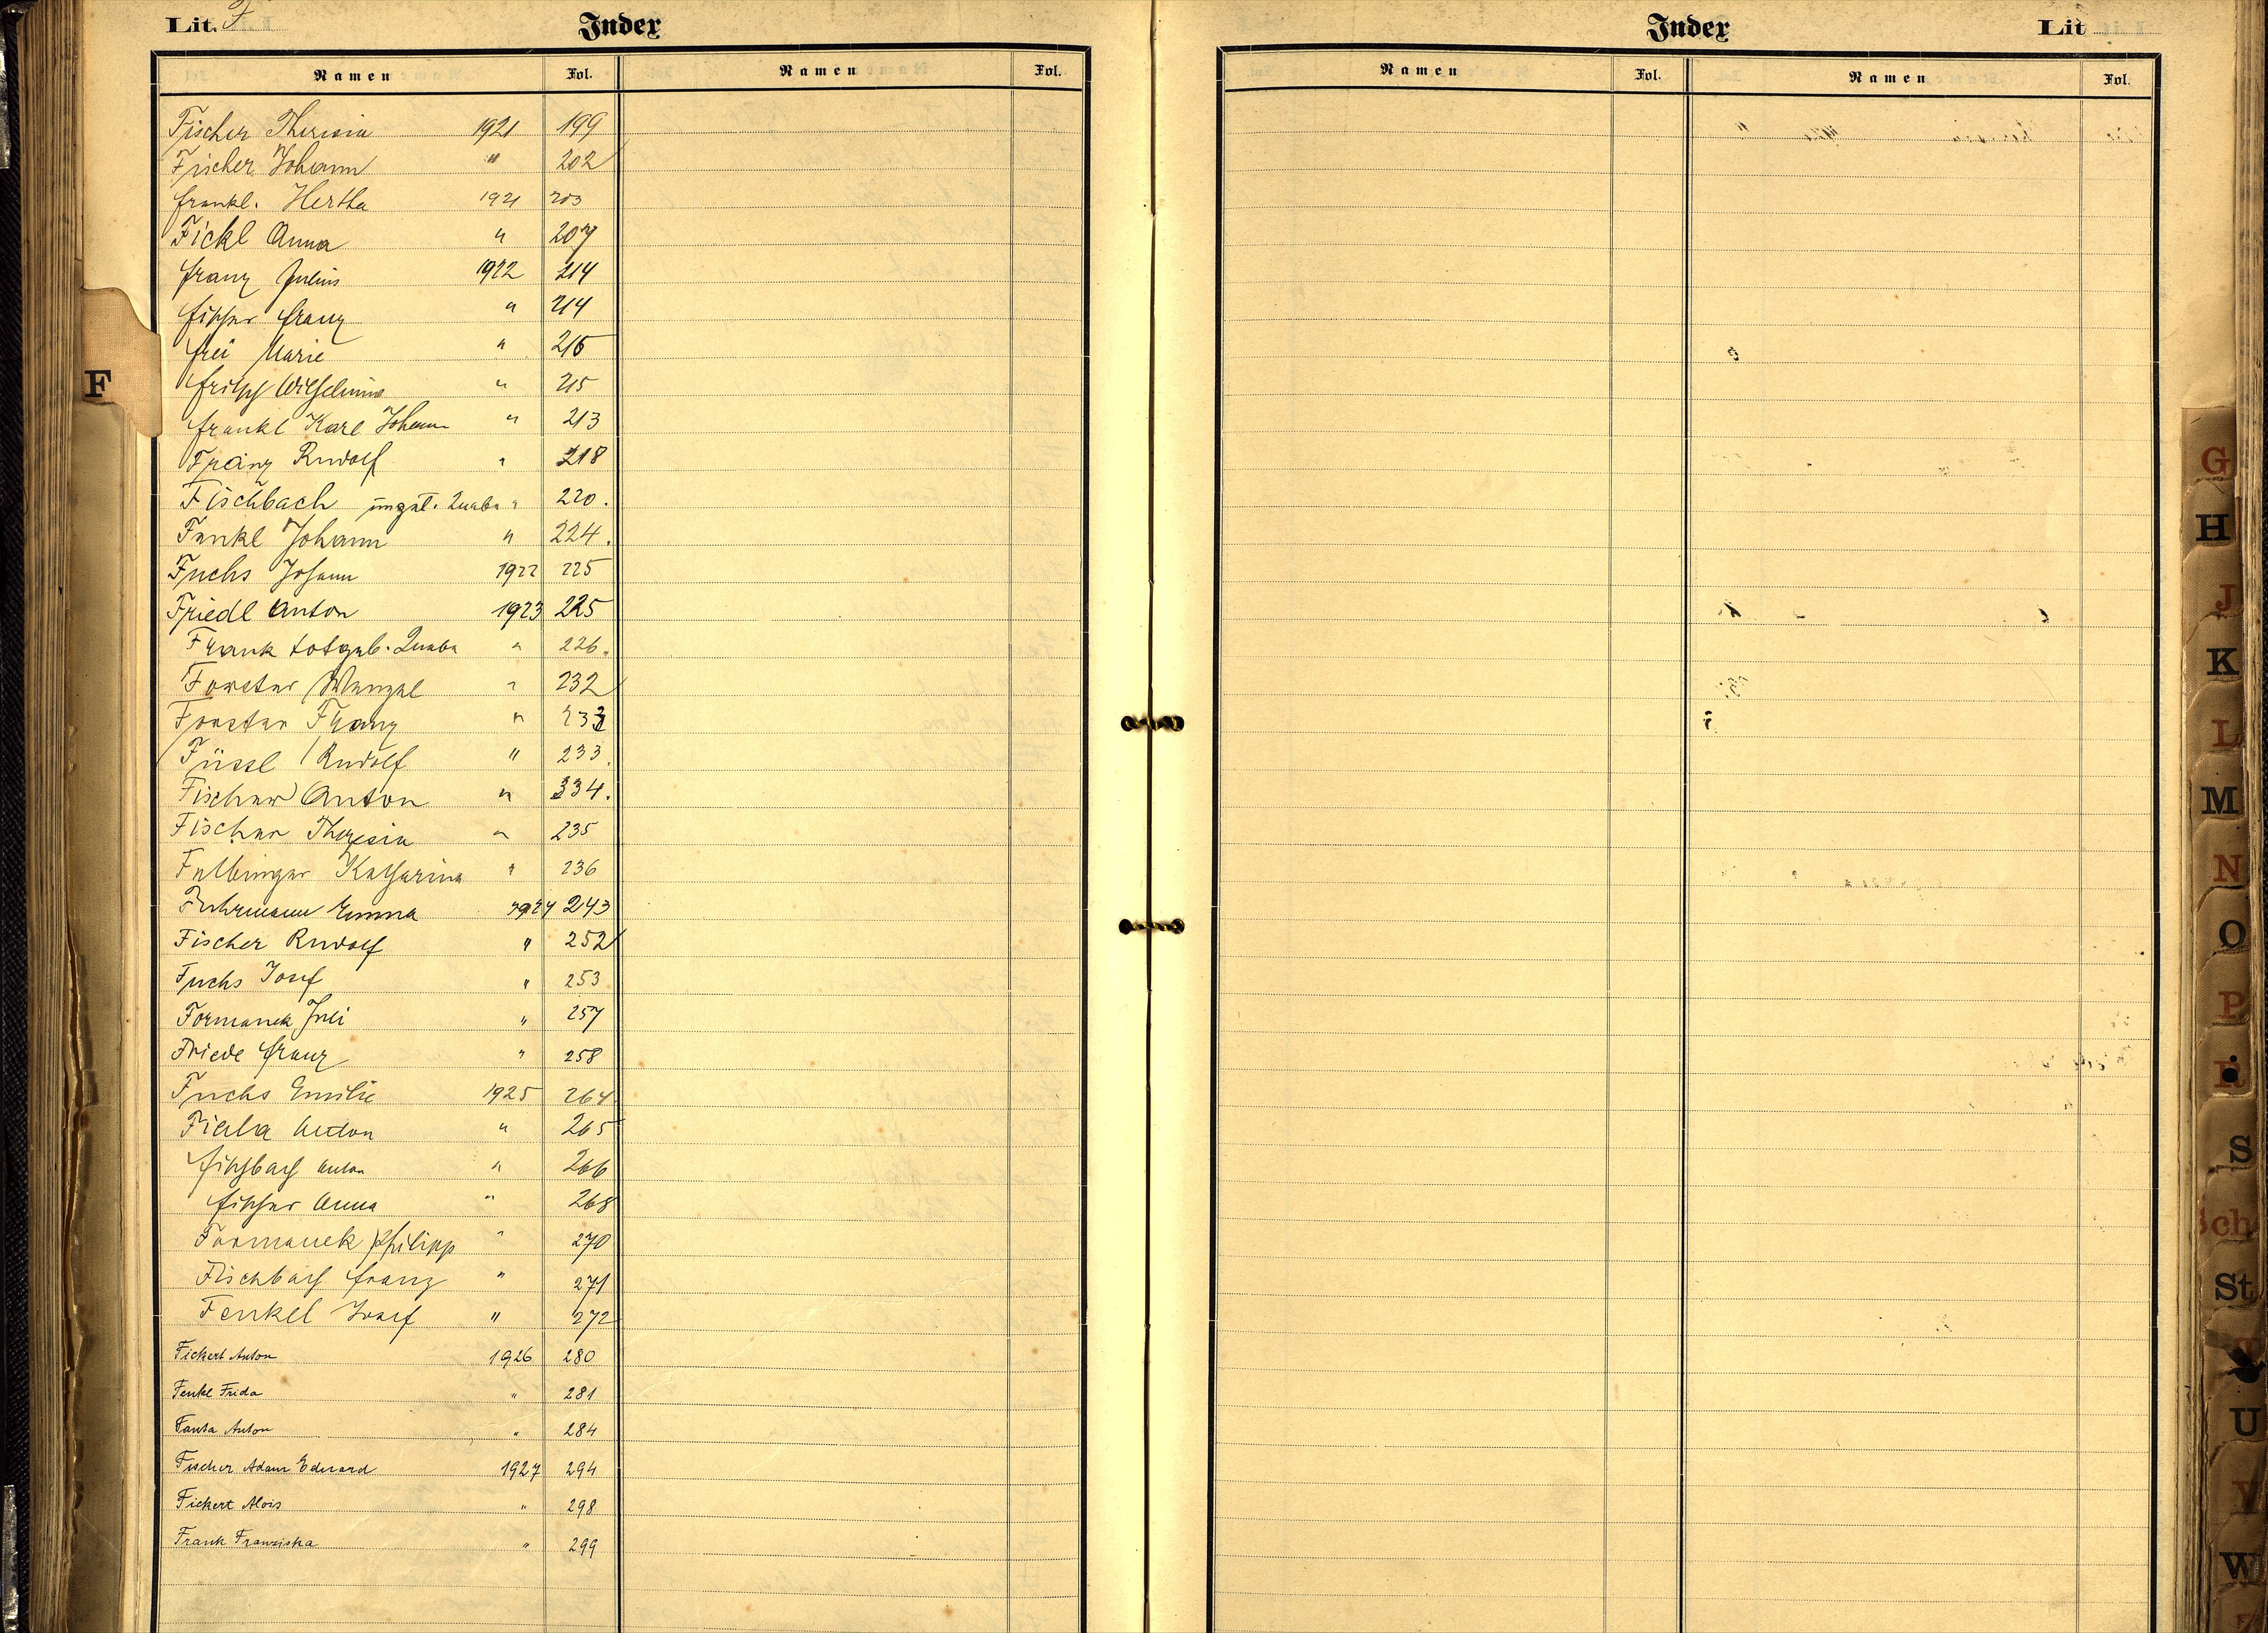 Lit. F Index
Namen Fol. Namen Fol.
Fischer Theresia 1921 199
Fischer Johann " 202
Frankl. Hertha 1921 203
Fickl Anna " 207
Franz Julius 1922 214
Fischer Franz " 214
Frei Marie " 215
Fritsch Wilhelmine " 215
Frankl Karl Johann " 213
Franz Rudolf " 218
Fischbach ungat. Knabe " 220.
Fenkl Johann " 224.
Fuchs Johann 1922 225
Friedl Anton 1923 225
Frank totgeb. Knabe " 226.
Forster Wenzel " 232
Forster Franz " 233
Füssl Rudolf " 233.
Fischer Anton " 334.
Fischer Theresia " 235
Felbinger Katharina " 236
Fuhrmann Emma 1924 243
Fischer Rudolf " 252
Fuchs Josef " 253
Formanek Juli " 257
Friede Franz " 258
Fuchs Emilie 1925 264
Fiala Anton " 265
Fischbach Anton " 266
Fischer Anna " 268
Formanek Philipp " 270
Fischbach Franz " 271
Fenkel Josef " 272
Fickert Anton 1926 280
Fenkl Frida " 281
Fanta Anton " 284
Fischer Adam Eduard 1927 294
Fickert Alois " 298
Frank Franziska " 299
F
Index Lit
Namen Fol. Namen Fol.
G
H
J
K
L
M
N
O
P
R
S
Sch
St
U
V
W